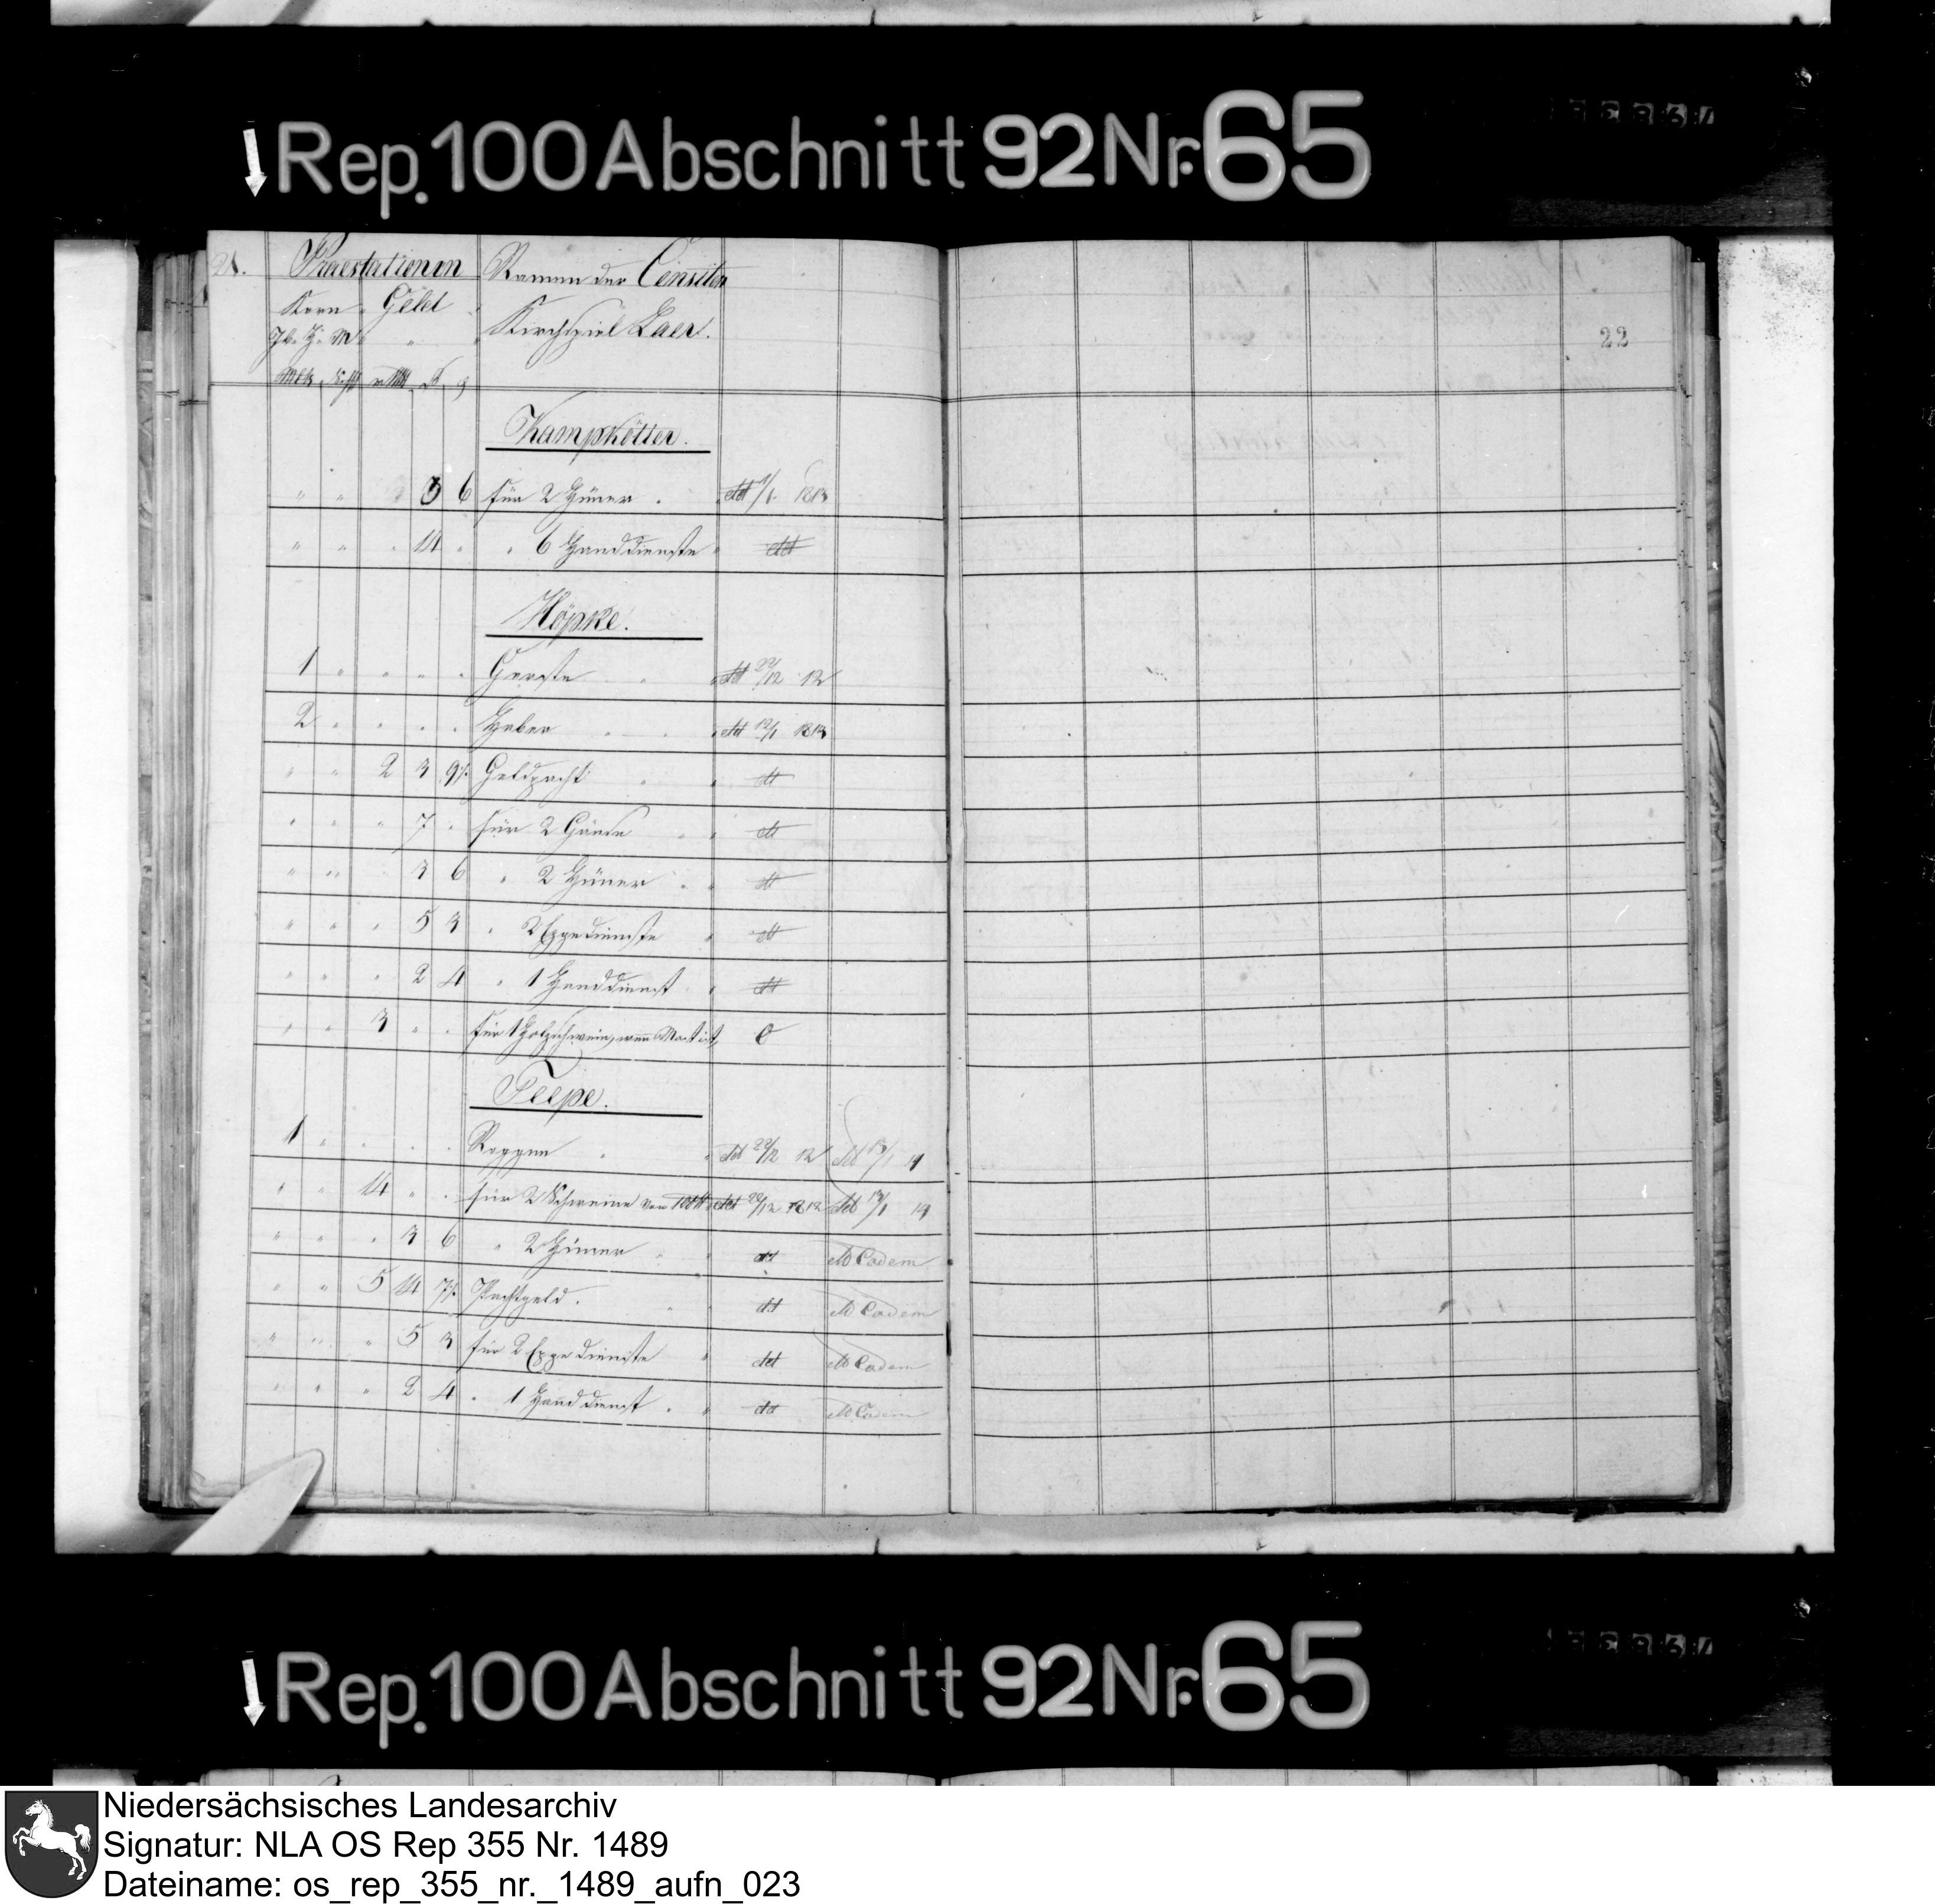 Rep. 100 Abschnitt 92 Nr. 65
21.
Praestationen
Namen der Censiten
Korn Geld
Kirchspiel Laer.
22
Kampkötter.
" " 3 6 für 2 Hüner . ddt 1/1 1813
" " " 14 " " 6 Handdienste ddt
Höpke.
1 " " " " Gerste ddt 22/12 12
2 " " " " Haber ddt 12/1 1813
" " 2 3 9½ Geldpacht dt
" " " 7 " für 2 Gänse dt
" " " 3 6 " 2 Hüner dt
" " " 5 3 " 2 Eggedienste dt
" " " 2 4 " 1 Handdienst dt
" " 3 " " für 1 Holzschwein, wenn Mast ist, 0
Teepe.
1 " " " " Roggen ddt 22/12 12 ddt 13/1 14
" " 14 " " für 2 Schweine von ddt 22/12 1812 ddt 13/1 14
" " " 3 6 " 2 Hüner dt dt eadem
" " 5 14 7½ Pachtgeld. ddt dt eadem
" " " 5 3 für 2 Eggedienste ddt dt eadem
" " " 2 4 " 1 Handdienst . dt dt eadem
Rep. 100 Abschnitt 92 Nr. 65
Niedersächsisches Landesarchiv
Signatur: NLA OS Rep 355 Nr. 1489
Dateiname: os_rep_355_nr._1489_aufn_023